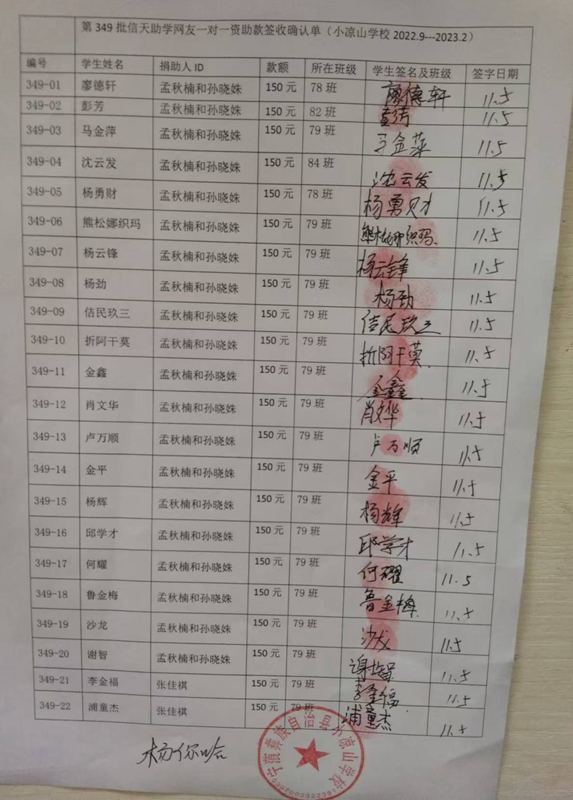 第 349 批信天助学网友一对一资助款签收确认单（小凉山学校 2022.9---2023.2）
编号 学生姓名 捐助人 ID 款额 所在班级 学生签名及班级 签字日期
349-01 廖德轩 孟秋楠和孙晓姝 150 元 78 班 廖德轩 11.5
349-02 彭芳 孟秋楠和孙晓姝 150 元 82 班 11.5
349-03 马金萍 孟秋楠和孙晓姝 150 元 79 班 马金萍 11.5
349-04 沈云发 孟秋楠和孙晓姝 150 元 84 班 沈云发 11.5
349-05 杨勇财 孟秋楠和孙晓姝 150 元 78 班 杨勇财 11.5
349-06 熊松娜织玛 孟秋楠和孙晓姝 150 元 79 班 熊松娜织玛 11.5
349-07 杨云锋 孟秋楠和孙晓姝 150 元 79 班 杨云锋 11.5
349-08 杨劲 孟秋楠和孙晓姝 150 元 79 班 杨劲 11.5
349-09 佶民玖三 孟秋楠和孙晓姝 150 元 79 班 佶民玖三 11.5
349-10 折阿干莫 孟秋楠和孙晓姝 150 元 79 班 折阿干莫 11.5
349-11 金鑫 孟秋楠和孙晓姝 150 元 79 班 金鑫 11.5
349-12 肖文华 孟秋楠和孙晓姝 150 元 79 班 肖文华 11.5
349-13 卢万顺 孟秋楠和孙晓姝 150 元 79 班 卢万顺 11.5
349-14 金平 孟秋楠和孙晓姝 150 元 79 班 金平 11.5
349-15 杨辉 孟秋楠和孙晓姝 150 元 79 班 杨辉 11.5
349-16 邱学才 孟秋楠和孙晓姝 150 元 79 班 邱学才 11.5
349-17 何耀 孟秋楠和孙晓姝 150 元 79 班 何耀 11.5
349-18 鲁金梅 孟秋楠和孙晓姝 150 元 79 班 鲁金梅 11.5
349-19 沙龙 孟秋楠和孙晓姝 150 元 79 班 沙龙 11.5
349-20 谢智 孟秋楠和孙晓姝 150 元 79 班 谢智 11.5
349-21 李金福 张佳祺 150 元 79 班 李金福 11.5
349-22 浦童杰 张佳祺 150 元 79 班 浦童杰 11.5
杨你哈
宁蒗彝族自治县小凉山学校